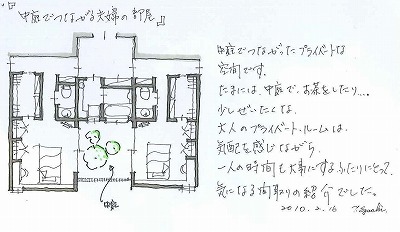 『中庭でつながる夫婦の部屋』
中庭でつながったプライベートな
空間です。
たまには、中庭で、お茶をしたり...
少しぜいたくな、
大人のプライベートルームは、
気配を感じながら、
一人の時間も大事にするふたりにとって、
気になる間取りの紹介でした。
2010.2.16
中庭